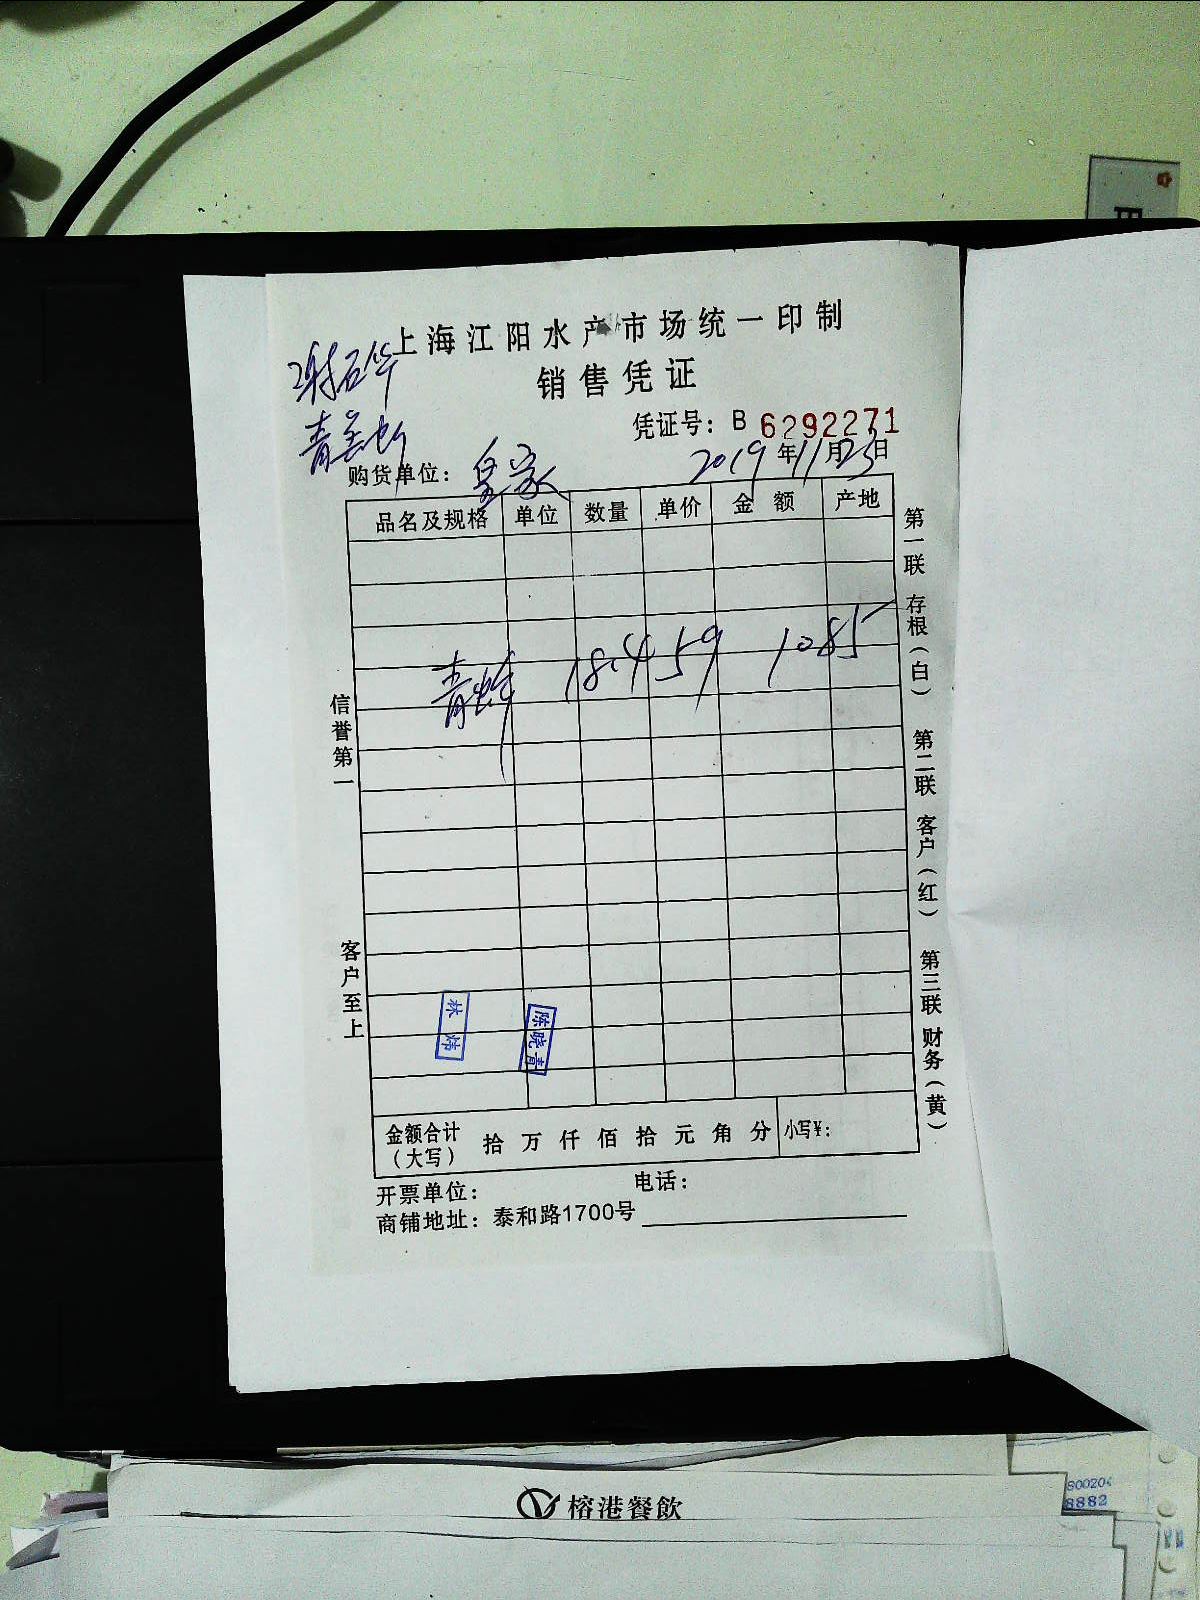 上海江阳水产市场统一印制
销售凭证
凭证号：B 6292271
2019年11月23日
购货单位：皇家
品名及规格 单位 数量 单价 金额 产地
青蟹 18.4 59 1085
信誉第一
客户至上
第一联 存根（白）
第二联 客户（红）
第三联 财务（黄）
林炜
陈晓青
金额合计（大写） 拾 万 仟 佰 拾 元 角 分 小写¥：
开票单位： 电话：
商铺地址：泰和路1700号
榕港餐飲
800204
8882